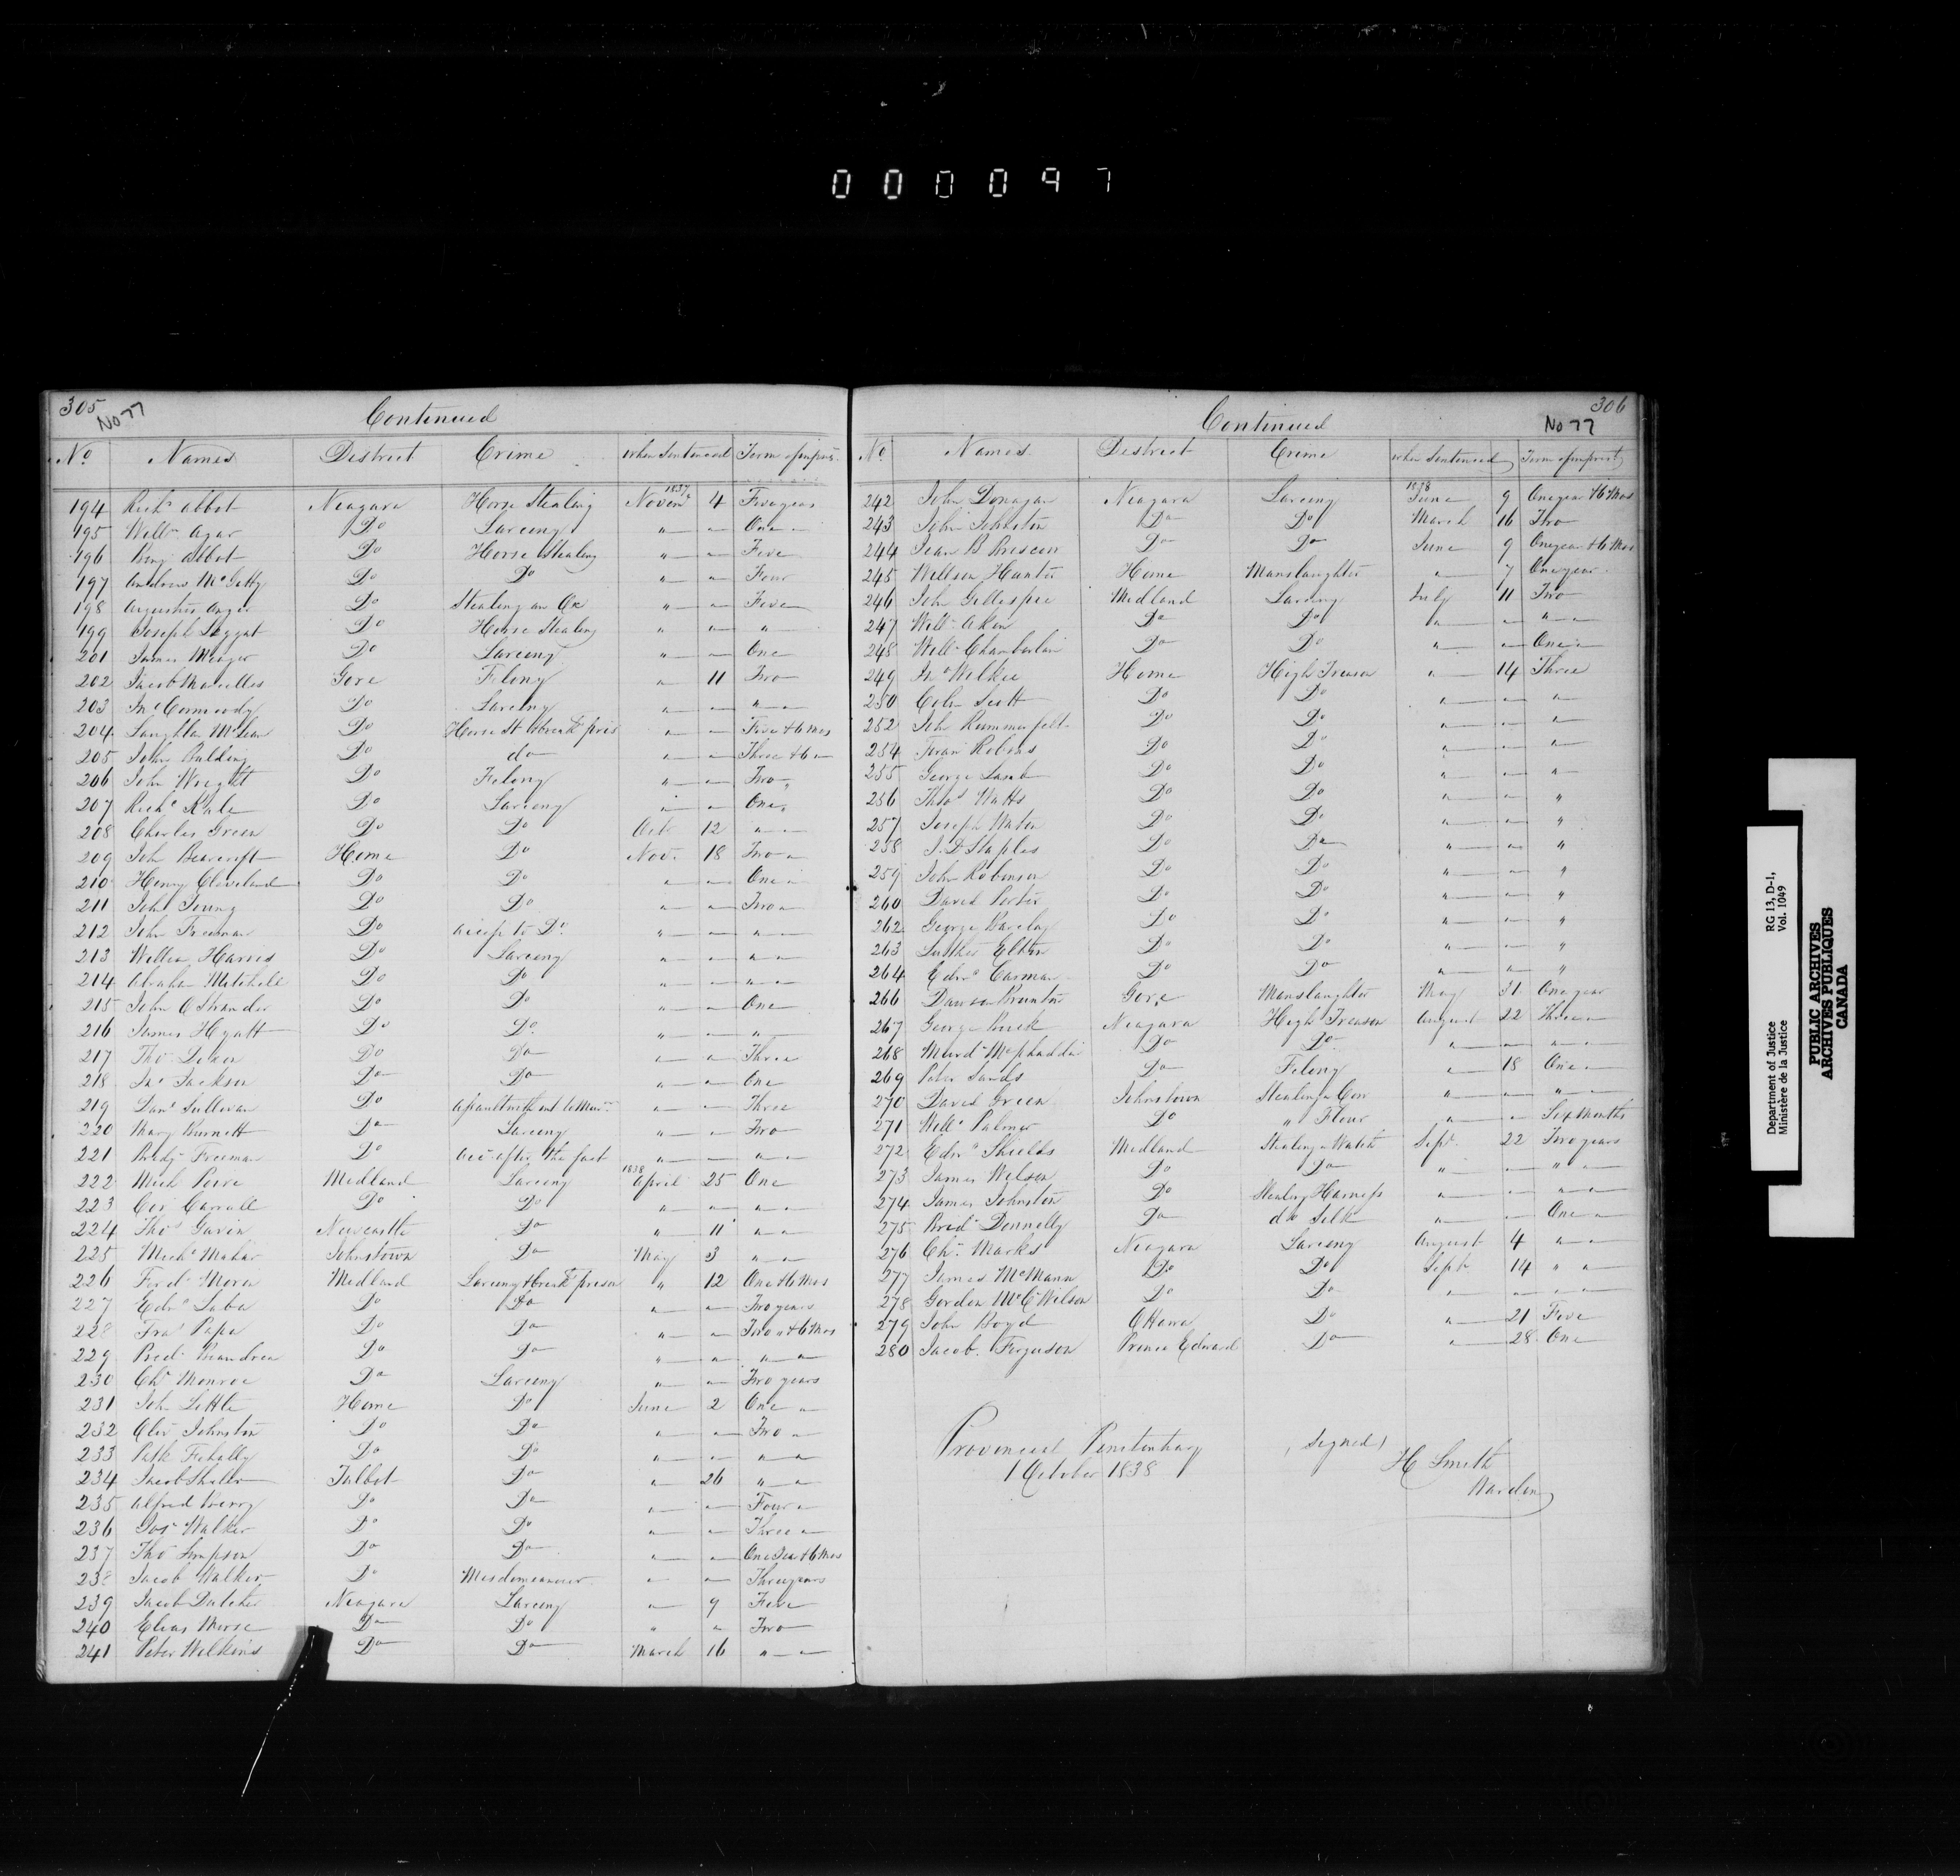 0 0 0 0 9 7
305
No 77
Continued
No. Names District Crime when Sentenced Term of impris.
194 Richd abbot Niagara Horse Stealing 1837 Novemr 4 Five years
195 Willm Agar Do Larceny " " One "
196 Benj abbot Do Horse Stealing " " Five
197 Andrew McGatty Do Do " " Four
198 Augustus Do Stealing an Ox " " Five
199 Joseph Leggat Do Horse Stealing " " "
201 James Meager Do Larceny " " One
202 Jacob Gore Felony " 11 Two
203 Jno Cormoody Do Larceny " " " "
204 Laughlan McLean Do Horse St & break pris " " Five & 6 Mos
205 John Balding Do do " " Three & 6 "
206 John Wright Do Felony " " Two "
207 Richd Kale Do Larceny " " One "
208 Charles Green Do Do Octr 12 " "
209 Joh Bearcroft Home Do Nov. 18 Two "
210 Henry Cleveland Do Do " " One "
211 John Young Do Do " " Two "
212 John Freeman Do accep to Do " " " "
213 William Harris Do Larceny " " " "
214 Abraham Mitchell Do Do " " " "
215 John O Strander Do Do " " One
216 James Hyatt Do Do " " "
217 Tho Do Do " " Three
218 Jno Jackson Do Do " " One
219 Danl Sullivan Do assault with int to Mur " " Three
220 Mary Burnett Do Larceny " " Two
221 Bridgt Freeman Do acc after the fact " " " "
222 Mich Power Midland Larceny 1838 April 25 One
223 Cor Carrall Do Do " " " "
224 Thos Gavin Newcastle Do " 11 " "
225 Michl Mahar Johnstown Do May 3 " "
226 Ferdd Mora Midland Larceny & break prison " 12 One & 6 Mos
227 Edwd Laba Do Do " " Two years
228 Fras Papa Do Do " " Two " & 6 Mos
229 Pred. Beaudrea Do Do " " " "
230 Chs Monroe Do Larceny " " Two years
231 Joh Little Home Do June 2 One "
232 Oliv Johnston Do Do " " Two "
233 Patk Do Do " " " "
234 Jacob Talbot Do " 26 " "
235 Alfred Berry Do Do " " Four "
236 Jos Walker Do Do " " Three "
237 Tho Simpson Do Do " " One Year & 6 Mos
238 Jacob Walker Do Misdemeanour " " Three years
239 Jacob Dutcher Niagara Larceny " 9 Five
240 Elias Morse Do Do " " Two
241 Peter Wilkins Do Do March 16 " "
306
No 77
Continued
No. Names District Crime when Sentenced Term of imprist
242 John Donagan Niagara Larceny 1838 June 9 One year & 6 Mos
243 John Johnston Do Do March 16 Two
244 Jean B Do Do June 9 One year & 6 Mos
245 Willson Hunter Home Manslaughter " 7 One year
246 John Gillespie Midland Larceny July 11 Two
247 Willm Aken Do Do " " " "
248 Willm Chamberlain Do Do " " One "
249 Jno Wilkie Home High Treason " 14 Three
250 Colin Scott Do Do " " "
252 John Rummerfelt Do Do " " "
254 Robins Do Do " " "
255 George Lamb Do Do " " "
256 Thos Watts Do Do " " "
257 Joseph Do Do " " "
258 J. D Staples Do Do " " "
259 John Robinson Do Do " " "
260 David Porter Do Do " " "
262 George Barclay Do Do " " "
263 Luther Elton Do Do " " "
264 Edwd Carman Do Do " " "
266 Dawson Brunton Gore Manslaughter May 31 One year
267 George Buck Niagara High Treason August 22 Three "
268 Murd McPhadden Do Do " " " "
269 Peter Sands Do Felony " 18 One "
270 David Green Johnstown Stealing a Cow " " " "
271 Willm Palmer Do " Flour " " Six Months
272 Edwd Shields Midland Stealing a Watch Sept. 22 Two years
273 James Wilson Do Do " " " "
274 James Johnston Do Stealing Harness " " " "
275 Bred Donnelly Do do Silk " " One "
276 Chs. Marks Niagara Larceny August 4 " "
277 James McMann Do Do Sept 14 " "
278 Gordon McC Wilson Do Do " " " "
279 John Boyd Ottawa Do " 21 Five
280 Jacob. Ferguson Prince Edward Do " 28 One
Provincial Penitentiary
1 October 1838
(Signed)
H Smith
Warden
Department of Justice RG 13, D-1,
Ministère de la Justice Vol. 1049
PUBLIC ARCHIVES
ARCHIVES PUBLIQUES
CANADA